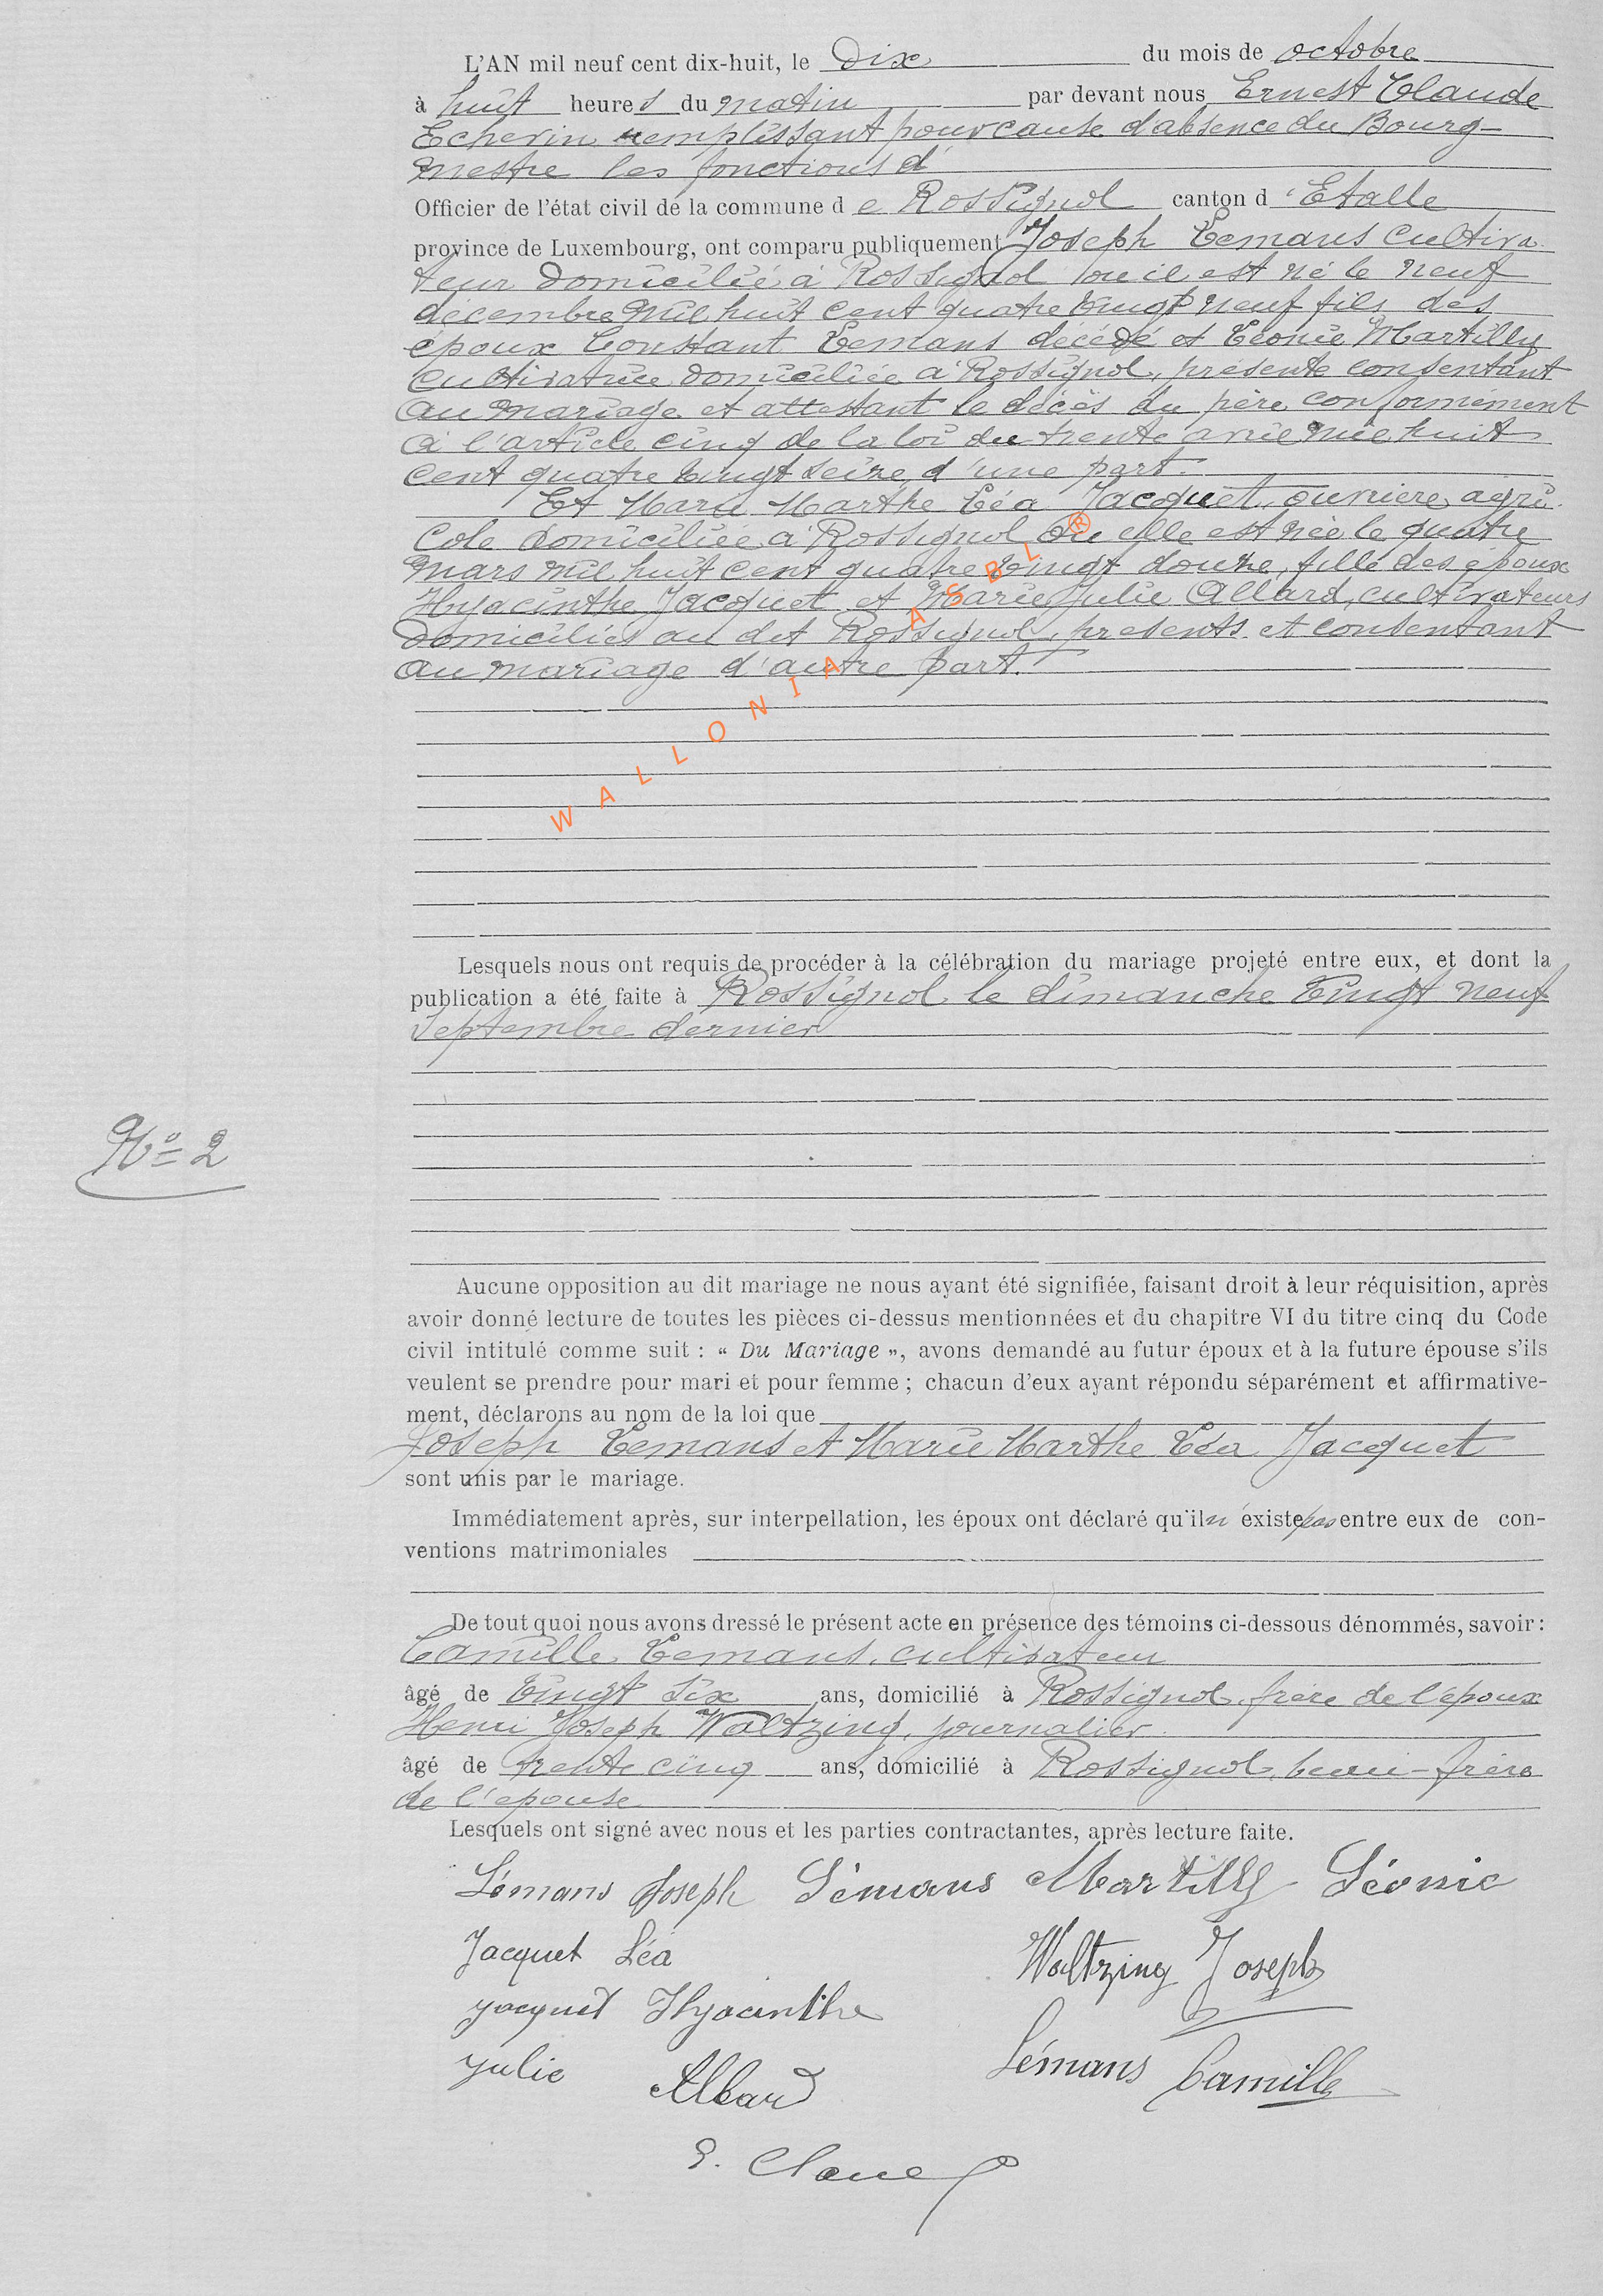 L'AN mil neuf cent dix-huit, le Dix du mois de octobre
à huit heures du matin par devant nous Ernest Claude
Echevin remplissant pour cause d'absence du Bourg-
mestre les fonctions d'
Officier de l'état civil de la commune de Rossignol canton d'Etalle
province de Luxembourg, ont comparu publiquement Joseph Lemans cultiva
teur domicilié à Rossignol où il est né le neuf
décembre mil huit cent quatre vingt neuf fils des
époux Constant Lemans décédé et Léonie Martilly
cultivatrice domiciliée à Rossignol, présente consentant
au mariage et attestant le décès du père conformément
à l'article cinq de la loi du trente avril mil huit
cent quatre vingt seize, d'une part.
Et Marie Marthe Léa Jacquet, ouvrière agri
cole domiciliée à Rossignol où elle est née le quatre
mars mil huit cent quatre vingt douze, fille des époux
Hyacinthe Jacquet et Marie Julie Allard, cultivateurs
domiciliés au dit Rossignol, présents et consentant
au mariage d'autre part.
WALLONIA ASBL ®
Lesquels nous ont requis de procéder à la célébration du mariage projeté entre eux, et dont la
publication a été faite à Rossignol le dimanche vingt neuf
septembre dernier
No 2
Aucune opposition au dit mariage ne nous ayant été signifiée, faisant droit à leur réquisition, après
avoir donné lecture de toutes les pièces ci-dessus mentionnées et du chapitre VI du titre cinq du Code
civil intitulé comme suit : « Du Mariage », avons demandé au futur époux et à la future épouse s'ils
veulent se prendre pour mari et pour femme ; chacun d'eux ayant répondu séparément et affirmative-
ment, déclarons au nom de la loi que
Joseph Lemans et Marie Marthe Léa Jacquet
sont unis par le mariage.
Immédiatement après, sur interpellation, les époux ont déclaré qu'il n'existe pas entre eux de con-
ventions matrimoniales
De tout quoi nous avons dressé le présent acte en présence des témoins ci-dessous dénommés, savoir :
Camille Lemans, cultivateur
âgé de vingt six ans, domicilié à Rossignol, frère de l'époux
Henri Joseph Waltzing, journalier
âgé de trente cinq ans, domicilié à Rossignol, beau-frère
de l'épouse
Lesquels ont signé avec nous et les parties contractantes, après lecture faite.
Lémans Joseph Lémans Martilly Léonie
Jacquet Léa Waltzing Joseph
Jacquet Hyacinthe
Julie Allard Lémans Camille
E. Claude